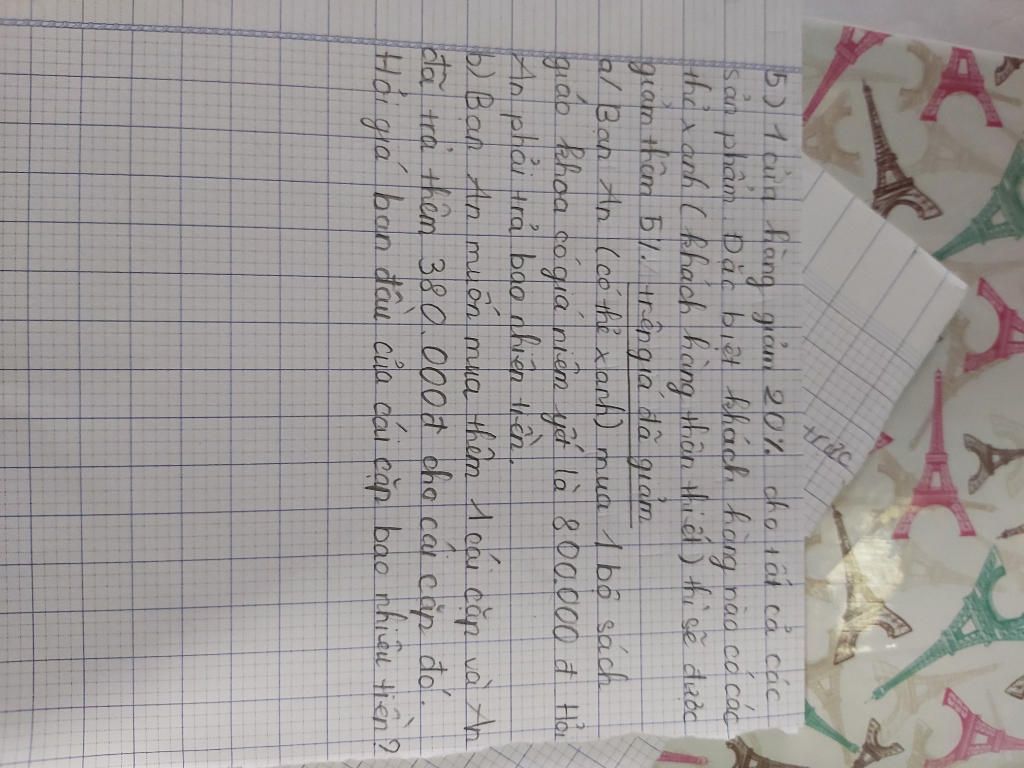 5) 1 cửa hàng giảm 20% cho tất cả các
sản phẩm Đặc biệt khách hàng nào có các
thẻ xanh (khách hàng thân thiết) thì sẽ được
giản thêm 5% trên giá đã giảm
a) Bạn An (có thẻ xanh) mua 1 bộ sách
giáo khoa có giá niêm yết là 800.000 đ Hỏi
An phải trả bao nhiên tiền.
b) Bạn An muốn mua thêm 1 cái cặp và An
đã trả thêm 380.000đ cho cái cặp đó.
Hỏi giá ban đầu của cái cặp bao nhiêu tiền?